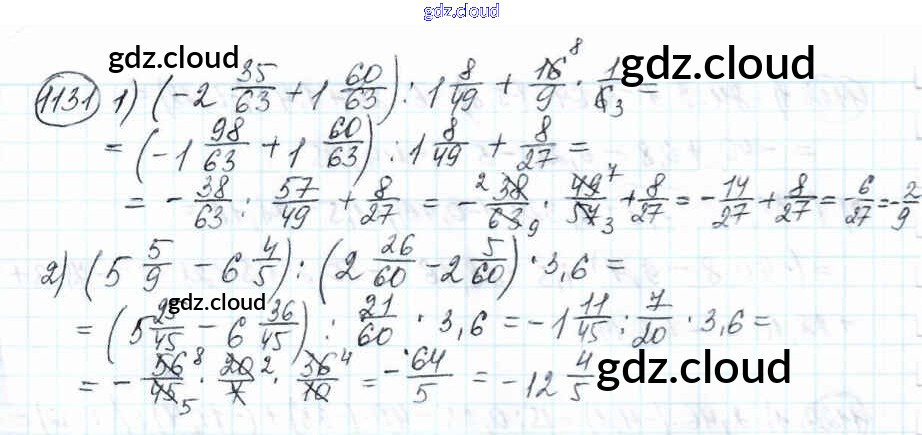 gdz.cloud
gdz.cloud gdz.cloud
1131 1) (-2 35/63 + 1 60/63) : 1 8/49 + 16 8/9 · 1/6 3 =
= (-1 98/63 + 1 60/63) : 1 8/49 + 8/27 =
= - 38/63 : 57/49 + 8/27 = - 2 38/63 9 · 49 7/57 3 + 8/27 = - 14/27 + 8/27 = - 6/27 = - 2/9
2) (5 5/9 - 6 4/5) : (2 26/60 - 2 5/60) · 3,6 =
gdz.cloud
= (5 25/45 - 6 36/45) : 21/60 · 3,6 = -1 11/45 : 7/20 · 3,6 =
= - 56 8/45 5 · 20 2/7 · 36 4/10 = - 64/5 = -12 4/5
gdz.cloud